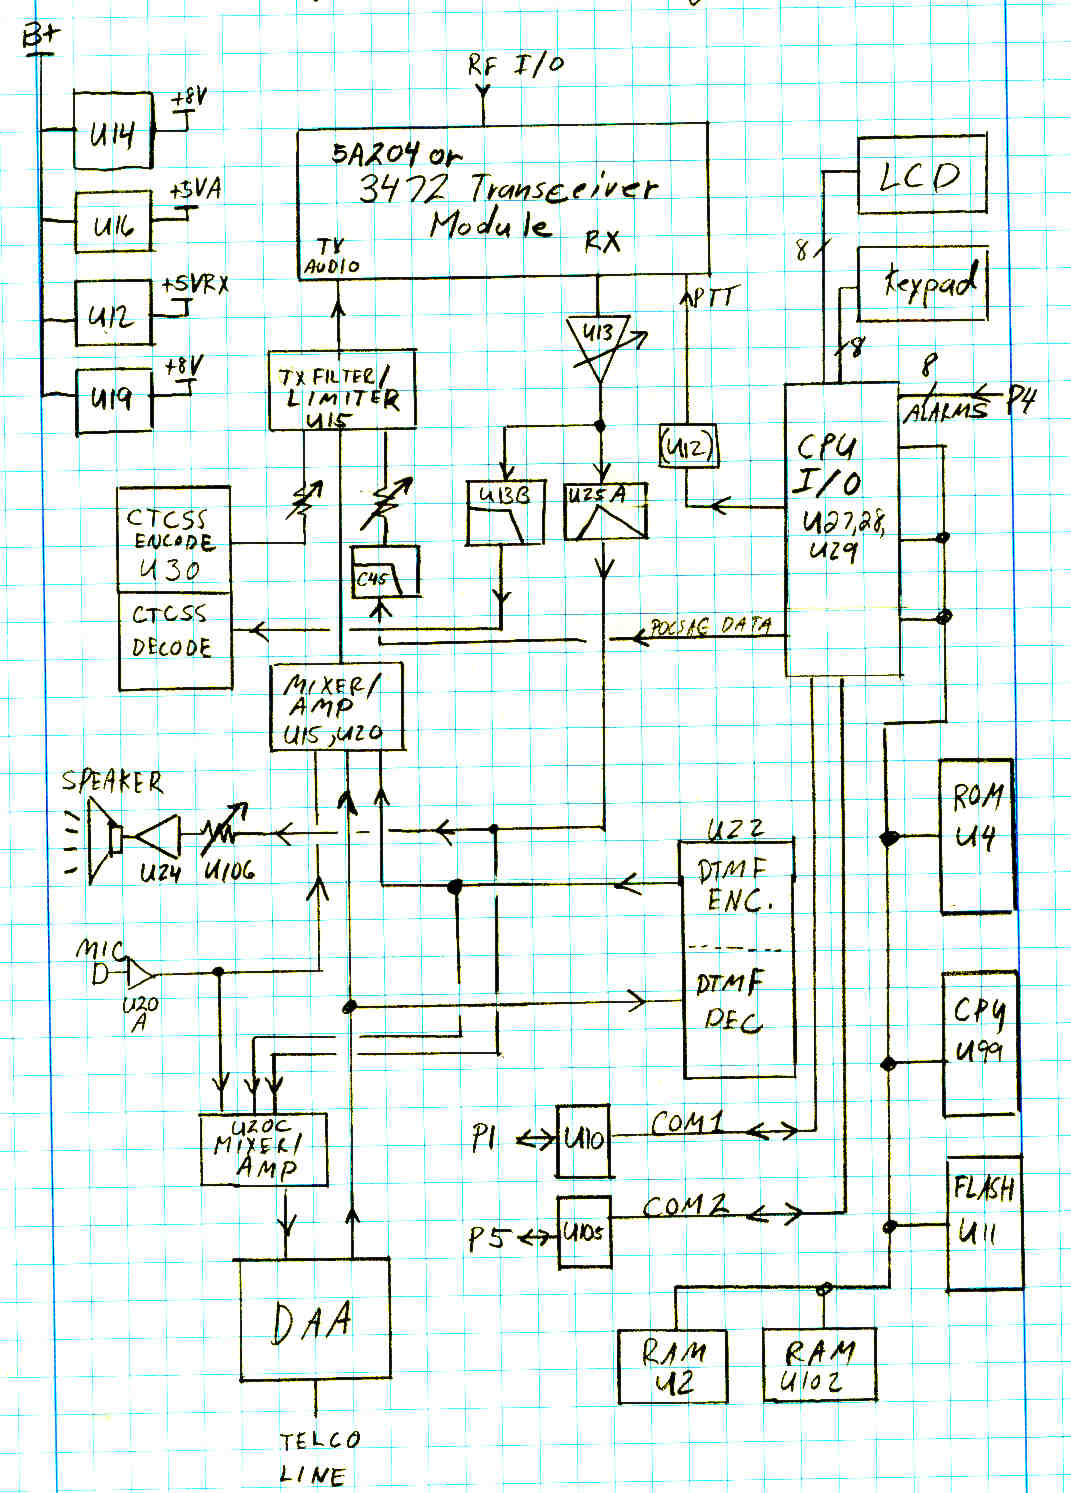 B+
RF I/O
U14
+8V
5A204 or
3472 Transceiver
Module
TX
AUDIO
RX
LCD
U16
+5VA
8
Keypad
U12
+5VRX
PTT
U13
8
U19
+8V
TX FILTER/
LIMITER
U15
8
ALARMS
P4
(U12)
CPU
I/O
U27,28,
U29
U13B
U25A
CTCSS
ENCODE
U30
C45
CTCSS
DECODE
POCSAG DATA
MIXER/
AMP
U15,U20
SPEAKER
U24
U106
U22
DTMF
ENC.
DTMF
DEC
ROM
U4
MIC
U20
A
CPU
U99
U20C
MIXER/
AMP
P1
U10
COM1
P5
U105
COM2
FLASH
U11
DAA
RAM
U2
RAM
U102
TELCO
LINE